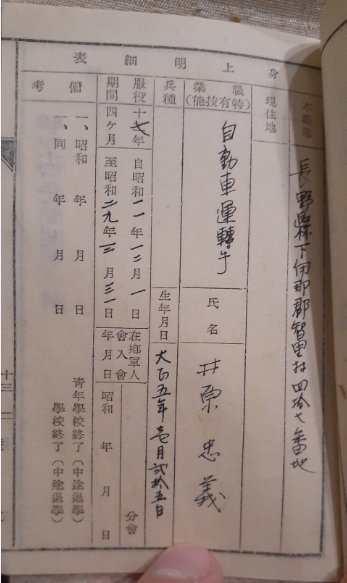 身上明細表
本籍地
長野縣下伊那郡智里村四拾七番地
現住地
職業
(特有技能)
自動車運轉手
氏名
井原忠義
兵種
生年月日
大正五年壱月弐拾五日
服役期間
十七年四ヶ月
自昭和一一年一二月一日
至昭和二九年三月三一日
在郷軍人會入會年月日
昭和 年 月 日
分會
備考
一、昭和 年 月 日 青年學校終了(中途退學)
一、同 年 月 日 學校終了(中途退學)
十三